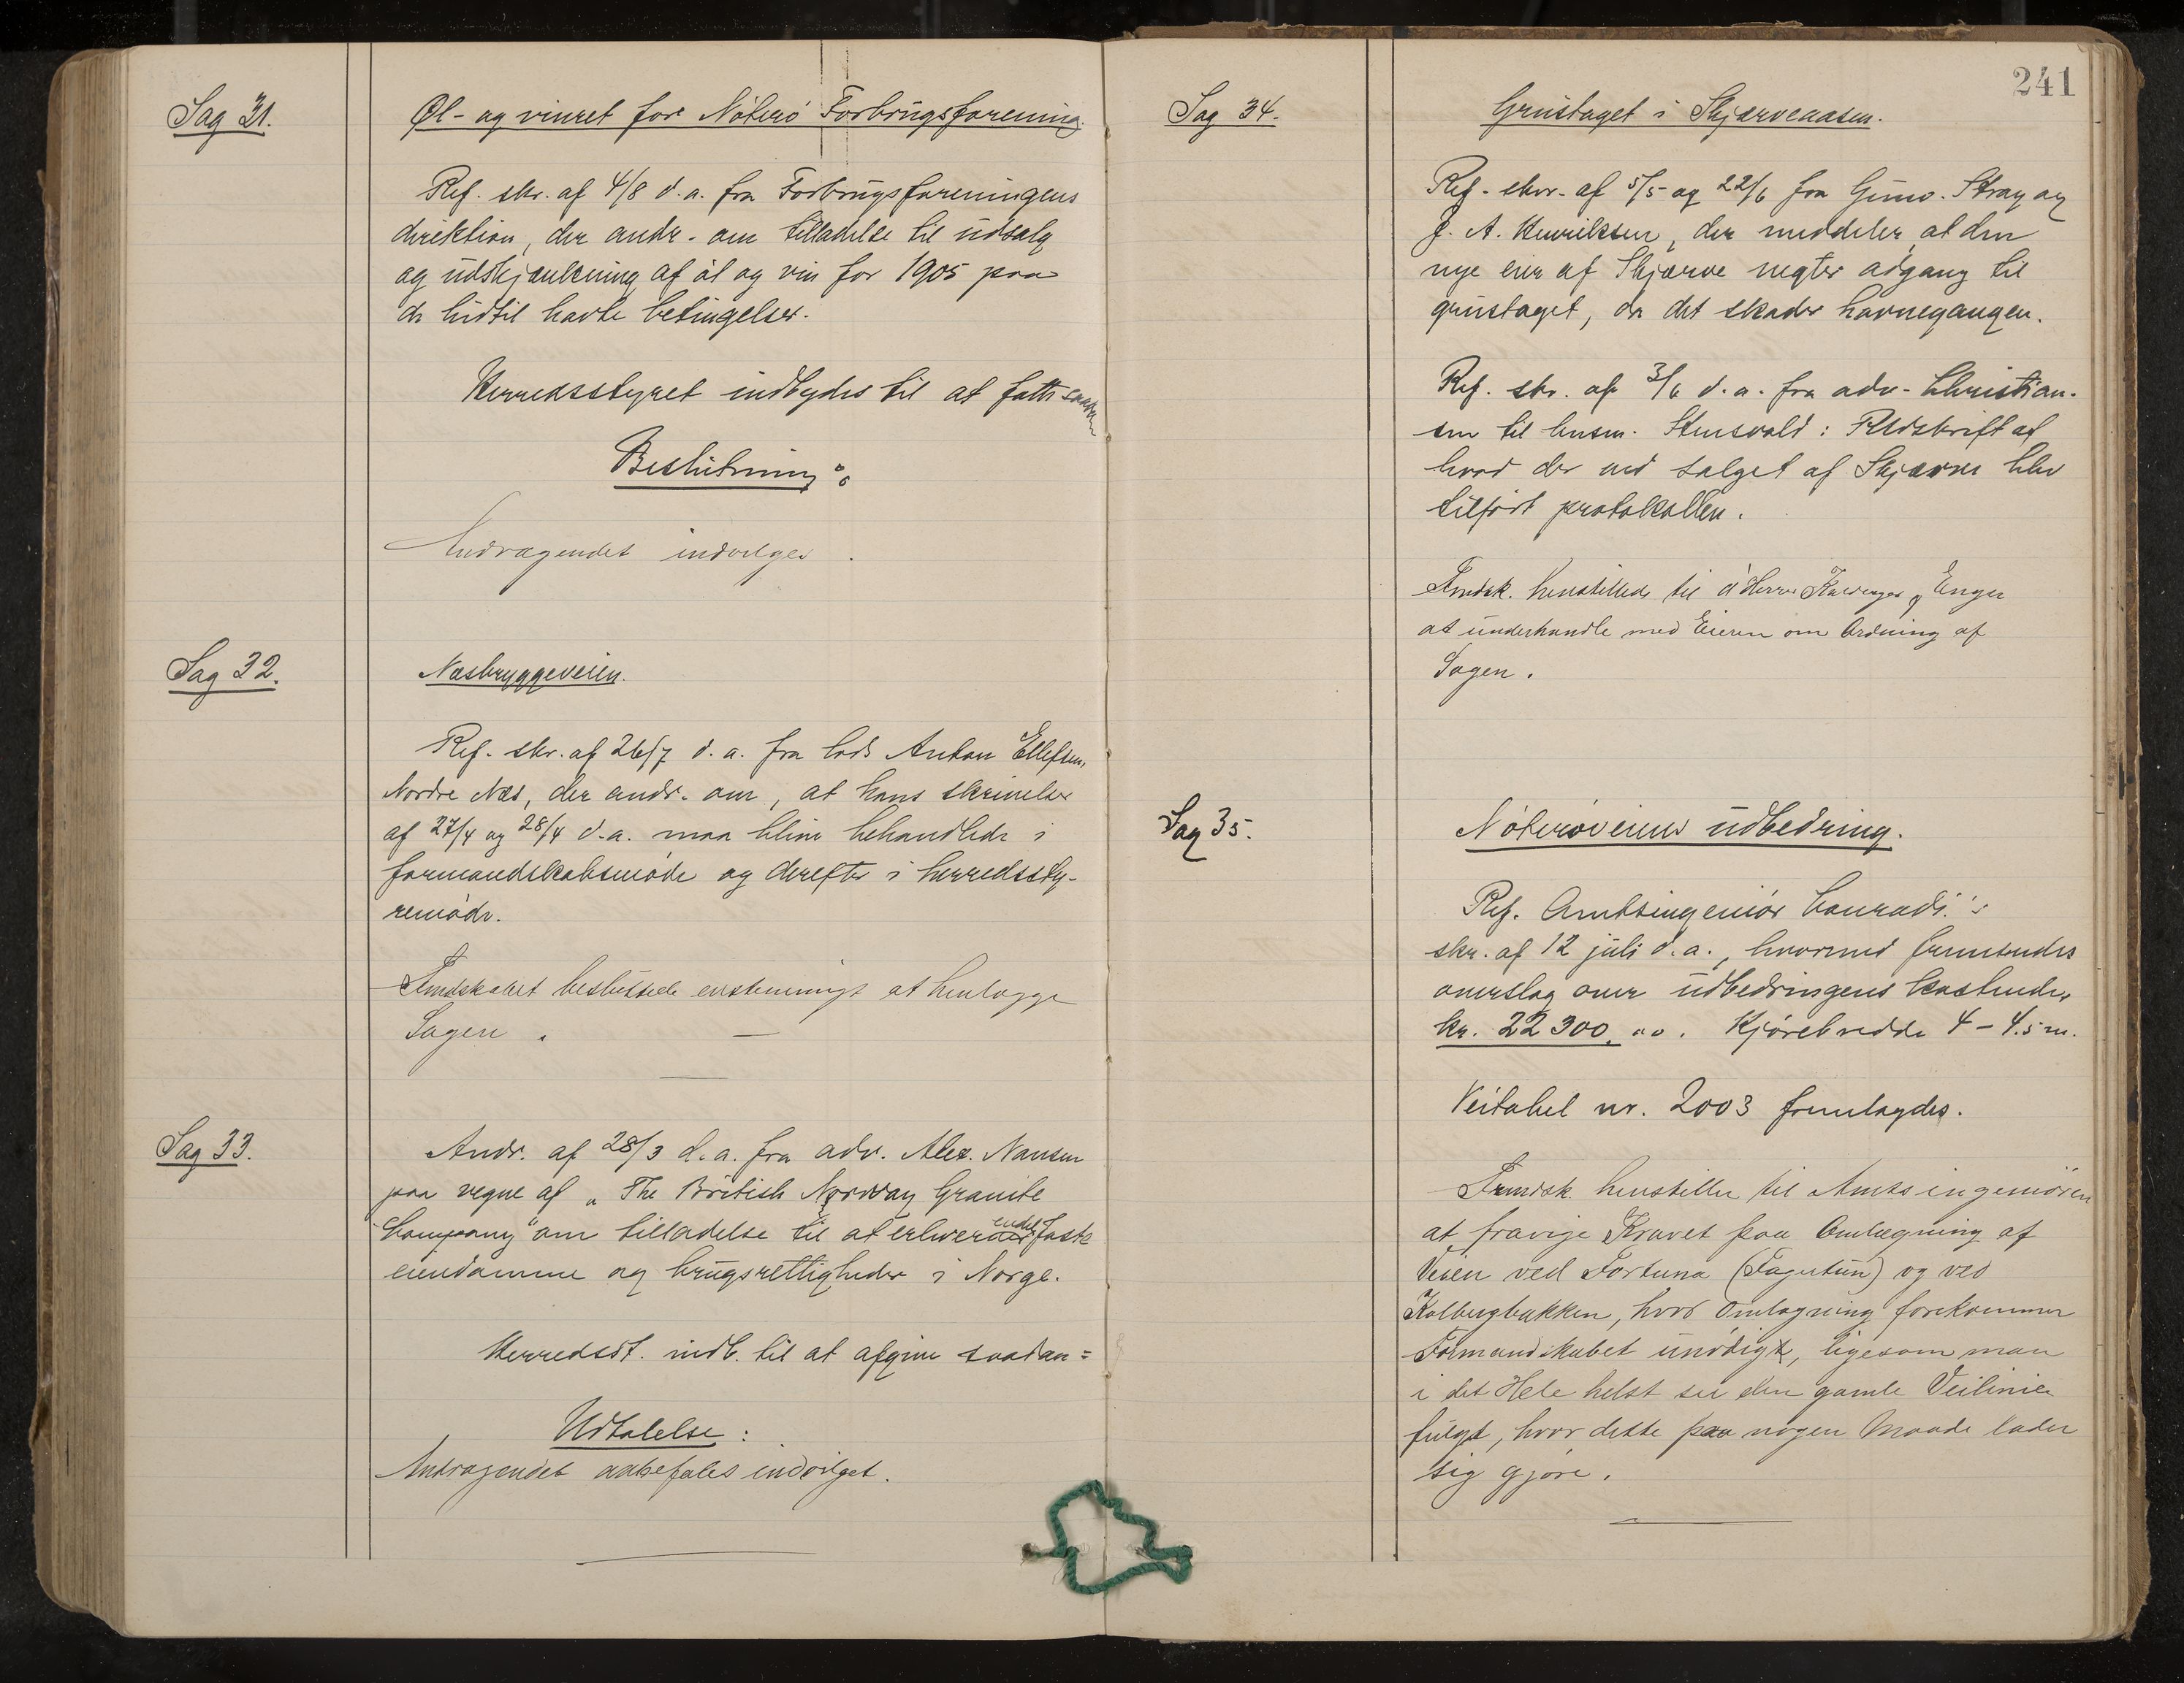 Sag 31.
Øl- og vinret for Nøterø Forbrugsforening.
Ref. skr. af 4/8 d.a. fra Forbrugsforeningens
direktion, der andr. om tilladelse til udsalg
og udskjænkning af øl og vin for 1905 paa
de hidtil havte betingelser.
Herredsstyret indbydes til at fatte saadan
Beslutning:
Andragendet indvilges.
Sag 32.
Næsbryggeveien.
Ref. skr. af 26/7 d.a. fra lods Anton Ellefsen,
Nordre Næs, der andr. om, at hans skrivelser
af 27/4 og 28/4 d.a. maa blive behandlede i
formandskabsmøde og derefter i herredssty-
remøde.
Fmdskabet besluttede enstemmigt at henlægge
Sagen.
Sag 33.
Andr. af 28/3 d.a. fra adv. Alex. Nansen
paa vegne af „The British Norway Granite
Company" om tilladelse til at erhverve endel faste
eiendomme og brugsrettigheder i Norge.
Herredsst. indb. til at afgive saadan=
Udtalelse:
Andragendet anbefales indvilget.
241
Sag 34.
Grustaget i Skjærveaasen.
Ref. skr. af 5/5 og 22/6 fra Stray og
J. A. Henriksen, der meddeler at den
nye eier af Skjærve negter adgang til
grustaget, da det skader havnegangen.
Ref. skr. af 3/6 d.a. fra adv. Christian-
sen til lensm. Stensvold: Udskrift af
hvad der ved salget af Skjærve blev
tilført protokollen.
Fmdsk. henstillede til d'Herrer og Enger
at underhandle med Eieren om Ordning af
Sagen.
Sag 35.
Nøterøveiens udbedring.
Ref. Amtsingeniør Conradi's
skr. af 12 juli d.a., hvormed fremsendes
overslag over udbedringens kostende,
kr. 22 300,00. Kjørebredde 4 – 4.5 m.
Veitabel nr. 2003 fremlagdes.
Frmdsk. henstiller til Amtsingeniøren
at fravige Kravet paa Omlægning af
Veien ved Fortuna (Fagertun) og ved
Kolbergbakken, hvor Omlægning forekommer
Formandskabet unødig, ligesom man
i det Hele helst ser den gamle Veilinie
fulgt, hvor dette paa nogen Maade lader
sig gjøre.